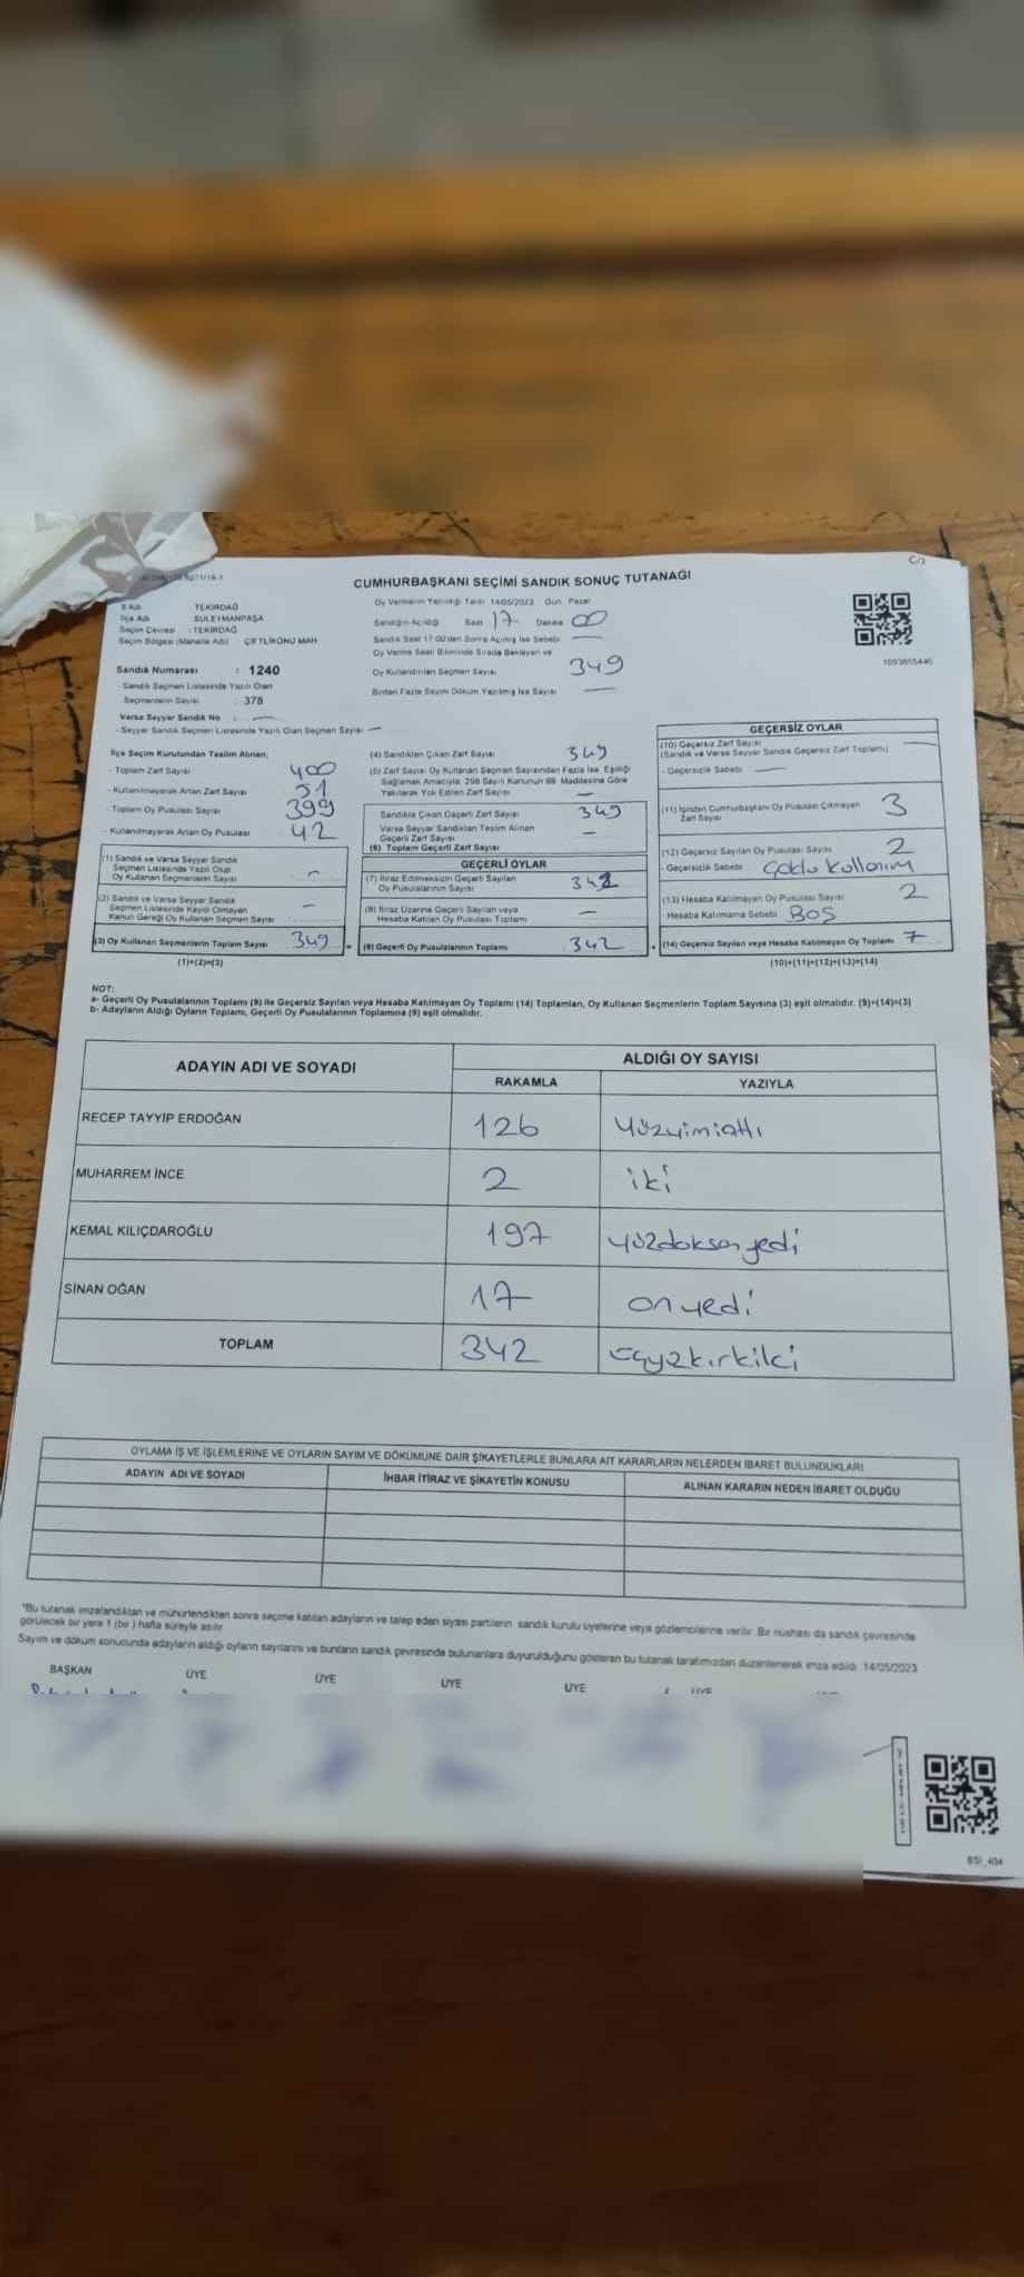 CUMHURBAŞKANI SEÇİMİ SANDIK SONUÇ TUTANAĞI
İl Adı TEKİRDAĞ
İlçe Adı SÜLEYMANPAŞA
Seçim Çevresi : TEKİRDAĞ
Seçim Bölgesi (Mahalle Adı) ÇİFTLİKÖNÜ MAH
Sandık Numarası : 1240
Sandık Seçmen Listesinde Yazılı Olan
Seçmenlerin Sayısı : 378
Varsa Seyyar Sandık No : —
- Seyyar Sandık Seçmen Listesinde Yazılı Olan Seçmen Sayısı —
Oy Vermenin Yapıldığı Tarih 14/05/2023 Gün Pazar
Sandığın Açıldığı Saat 17 Dakika 00
Sandık Saat 17.00'den Sonra Açılmış İse Sebebi —
Oy Verme Saati Bitiminde Sırada Bekleyen ve
Oy Kullandırılan Seçmen Sayısı 349
Birden Fazla Sayım Döküm Yapılmış İse Sayısı —
1093855446
İlçe Seçim Kurulundan Teslim Alınan;
- Toplam Zarf Sayısı 400
- Kullanılmayarak Artan Zarf Sayısı 51
- Toplam Oy Pusulası Sayısı 399
- Kullanılmayarak Artan Oy Pusulası 42
(1) Sandık ve Varsa Seyyar Sandık
Seçmen Listesinde Yazılı Olup
Oy Kullanan Seçmenlerin Sayısı
(2) Sandık ve Varsa Seyyar Sandık
Seçmen Listesinde Kayıtlı Olmayan
Kanun Gereği Oy Kullanan Seçmen Sayısı —
(3) Oy Kullanan Seçmenlerin Toplam Sayısı 349
(1)+(2)=(3)
(4) Sandıktan Çıkan Zarf Sayısı 349
(5) Zarf Sayısı Oy Kullanan Seçmen Sayısından Fazla İse, Eşitliği
Sağlamak Amacıyla, 298 Sayılı Kanunun 98. Maddesine Göre
Yakılarak Yok Edilen Zarf Sayısı —
Sandıkta Çıkan Geçerli Zarf Sayısı 349
Varsa Seyyar Sandıktan Teslim Alınan
Geçerli Zarf Sayısı —
(6) Toplam Geçerli Zarf Sayısı
GEÇERLİ OYLAR
(7) İtiraz Edilmeksizin Geçerli Sayılan
Oy Pusulalarının Sayısı 342
(8) İtiraz Üzerine Geçerli Sayılan veya
Hesaba Katılan Oy Pusulası Toplamı —
(9) Geçerli Oy Pusulalarının Toplamı 342
GEÇERSİZ OYLAR
(10) Geçersiz Zarf Sayısı —
(Sandık ve Varsa Seyyar Sandık Geçersiz Zarf Toplamı)
- Geçersizlik Sebebi —
(11) İçinden Cumhurbaşkanı Oy Pusulası Çıkmayan
Zarf Sayısı 3
(12) Geçersiz Sayılan Oy Pusulası Sayısı 2
- Geçersizlik Sebebi Çoklu Kullanım
(13) Hesaba Katılmayan Oy Pusulası Sayısı 2
- Hesaba Katılmama Sebebi BOŞ
(14) Geçersiz Sayılan veya Hesaba Katılmayan Oy Toplamı 7
(10)+(11)+(12)+(13)=(14)
NOT:
a- Geçerli Oy Pusulalarının Toplamı (9) ile Geçersiz Sayılan veya Hesaba Katılmayan Oy Toplamı (14) Toplamları, Oy Kullanan Seçmenlerin Toplam Sayısına (3) eşit olmalıdır. (9)+(14)=(3)
b- Adayların Aldığı Oyların Toplamı, Geçerli Oy Pusulalarının Toplamına (9) eşit olmalıdır.
ADAYIN ADI VE SOYADI ALDIĞI OY SAYISI
RAKAMLA YAZIYLA
RECEP TAYYİP ERDOĞAN 126 Yüzyimialtı
MUHARREM İNCE 2 iki
KEMAL KILIÇDAROĞLU 197 yüzdoksanyedi
SİNAN OĞAN 17 onyedi
TOPLAM 342 üçyüzkırkiki
OYLAMA İŞ VE İŞLEMLERİNE VE OYLARIN SAYIM VE DÖKÜMÜNE DAİR ŞİKAYETLERLE BUNLARA AİT KARARLARIN NELERDEN İBARET BULUNDUKLARI
ADAYIN ADI VE SOYADI İHBAR İTİRAZ VE ŞİKAYETİN KONUSU ALINAN KARARIN NEDEN İBARET OLDUĞU
"Bu tutanak imzalandıktan ve mühürlendikten sonra seçime katılan adayların ve talep eden siyasi partilerin sandık kurulu üyelerine veya gözlemcilerine verilir. Bir nüshası da sandık çevresinde
görülecek bir yere 1 (bir) hafta süreyle asılır.
Sayım ve döküm sonucunda adayların aldığı oyların sayılarını ve bunların sandık çevresinde bulunanlara duyurulduğunu gösteren bu tutanak tarafımızdan düzenlenerek imza edildi. 14/05/2023
BAŞKAN ÜYE ÜYE ÜYE ÜYE ÜYE